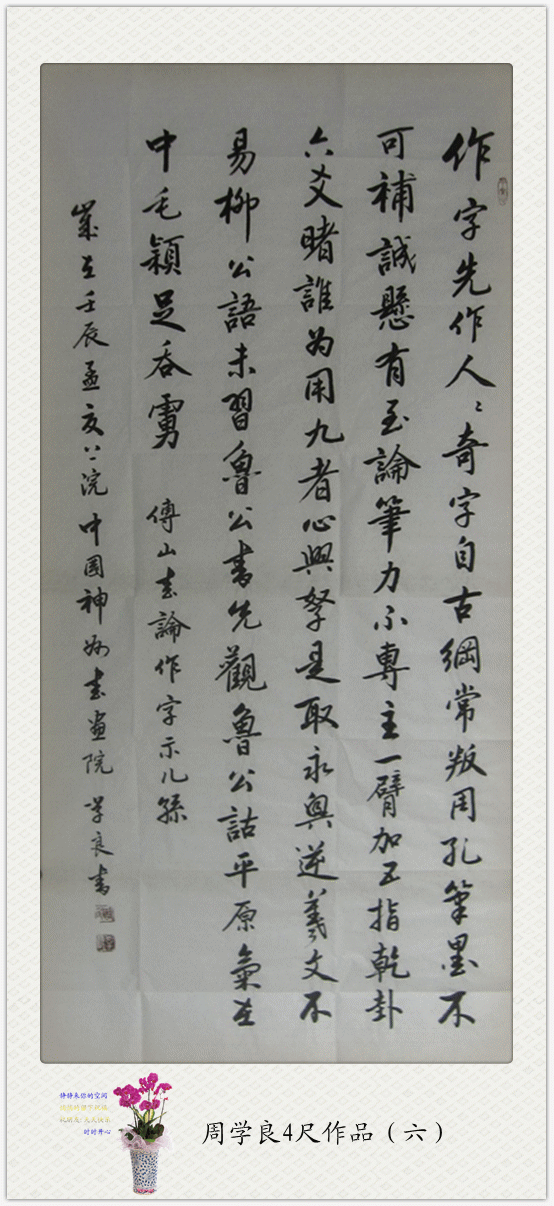 作字先作人〻奇字自古綱常叛周孔筆墨不
可補誠懸有至論筆力不專主一臂加五指乾卦
六爻睹誰为用九者心與孥是取永興逆羲文不
易柳公語未習魯公書先觀魯公詁平原氣在
中毛穎足吞虜
傅山書論作字示儿孫
歲在壬辰孟夏
中國神州書画院 学良書
周学良4尺作品（六）
静静来你的空间
时时开心